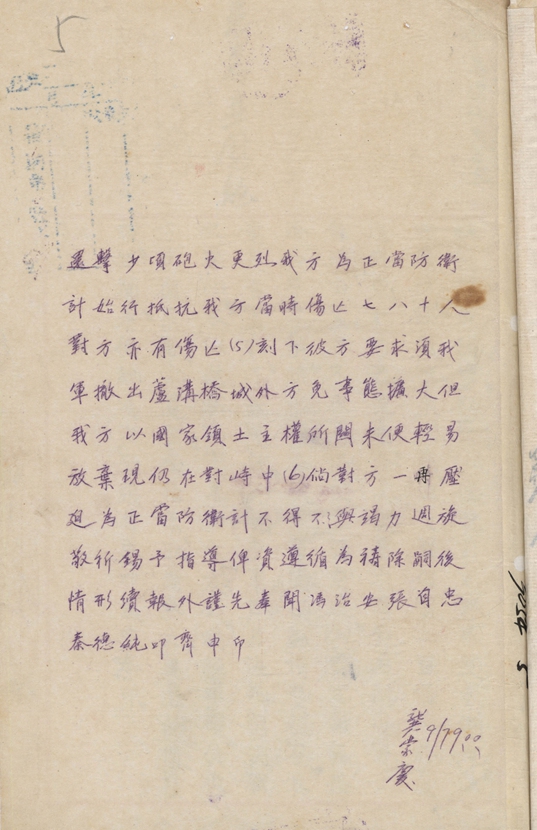 5
還擊少頃砲火更烈我方為正當防衛
計始行抵抗我方當時傷亡七八十人
對方亦有傷亡(5)刻下彼方要求須我
軍撤出蘆溝橋城外方免事態擴大但
我方以國家領土主權所關未便輕易
放棄現仍在對峙中(6)倘對方一再壓
迫為正當防衛計不得不與竭力週旋
敬祈錫予指導俾資遵循為禱除嗣後
情形續報外謹先奉聞馮治安張自忠
秦德純叩齊申印
龔宗慶
9/7